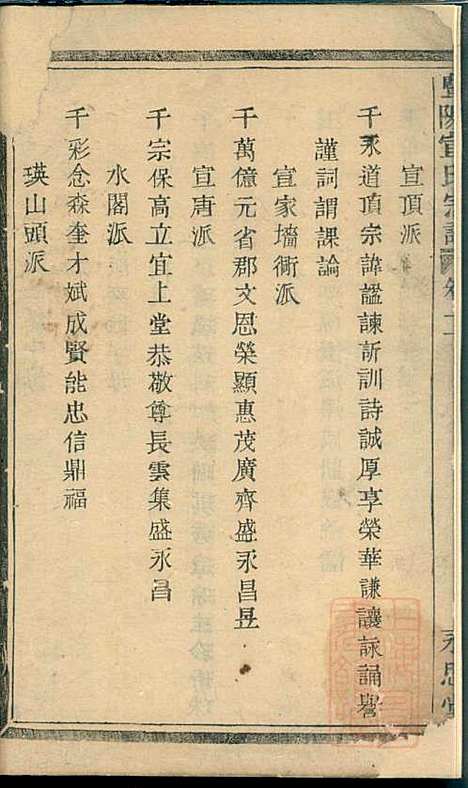 暨陽宣氏宗譜 卷二
宣頂派
千永道頂宗諱謐諫訢訓詩誠厚享榮華謙讓詠誦譽
謹詞謂課論
宣家墻衕派
千萬億元省郡文恩榮顯惠茂廣齊盛永昌昱
宣唐派
千宗保高立宜上堂恭敬尊長雲集盛永昌
水閣派
千彩念森奎才斌成賢能忠信鼎福
瑛山頭派